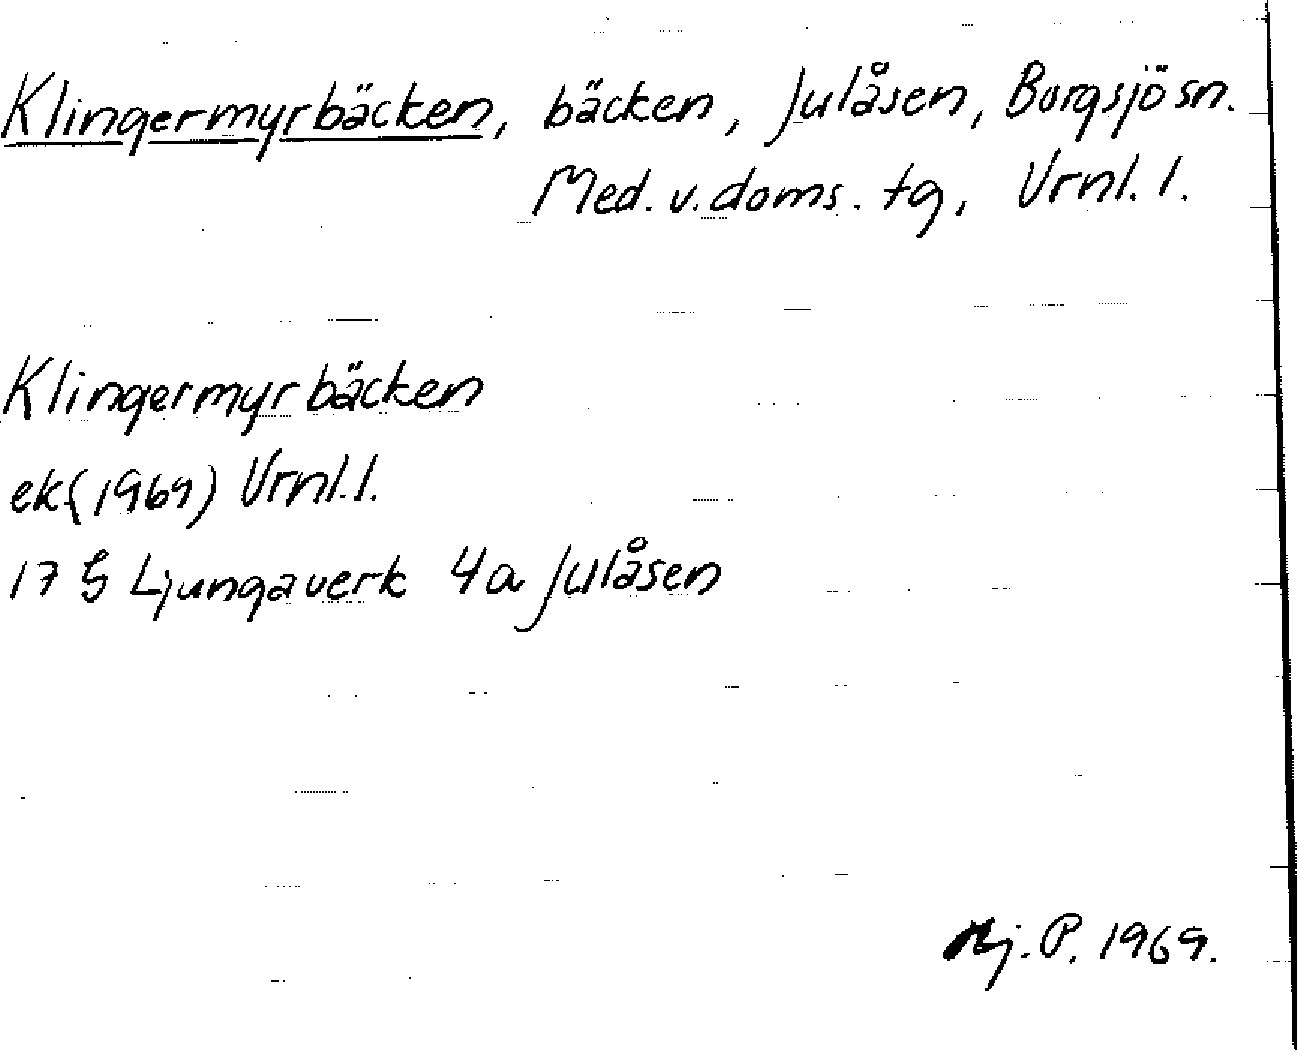 Klingermyrbäcken, bäcken, Julåsen, Borgsjö sn.
Med. v. doms. tg, Vrnl. l.
Klingermyrbäcken
ek (1969) Vrnl. l.
17 G Ljungaverk 4a Julåsen
Hj. P. 1969.